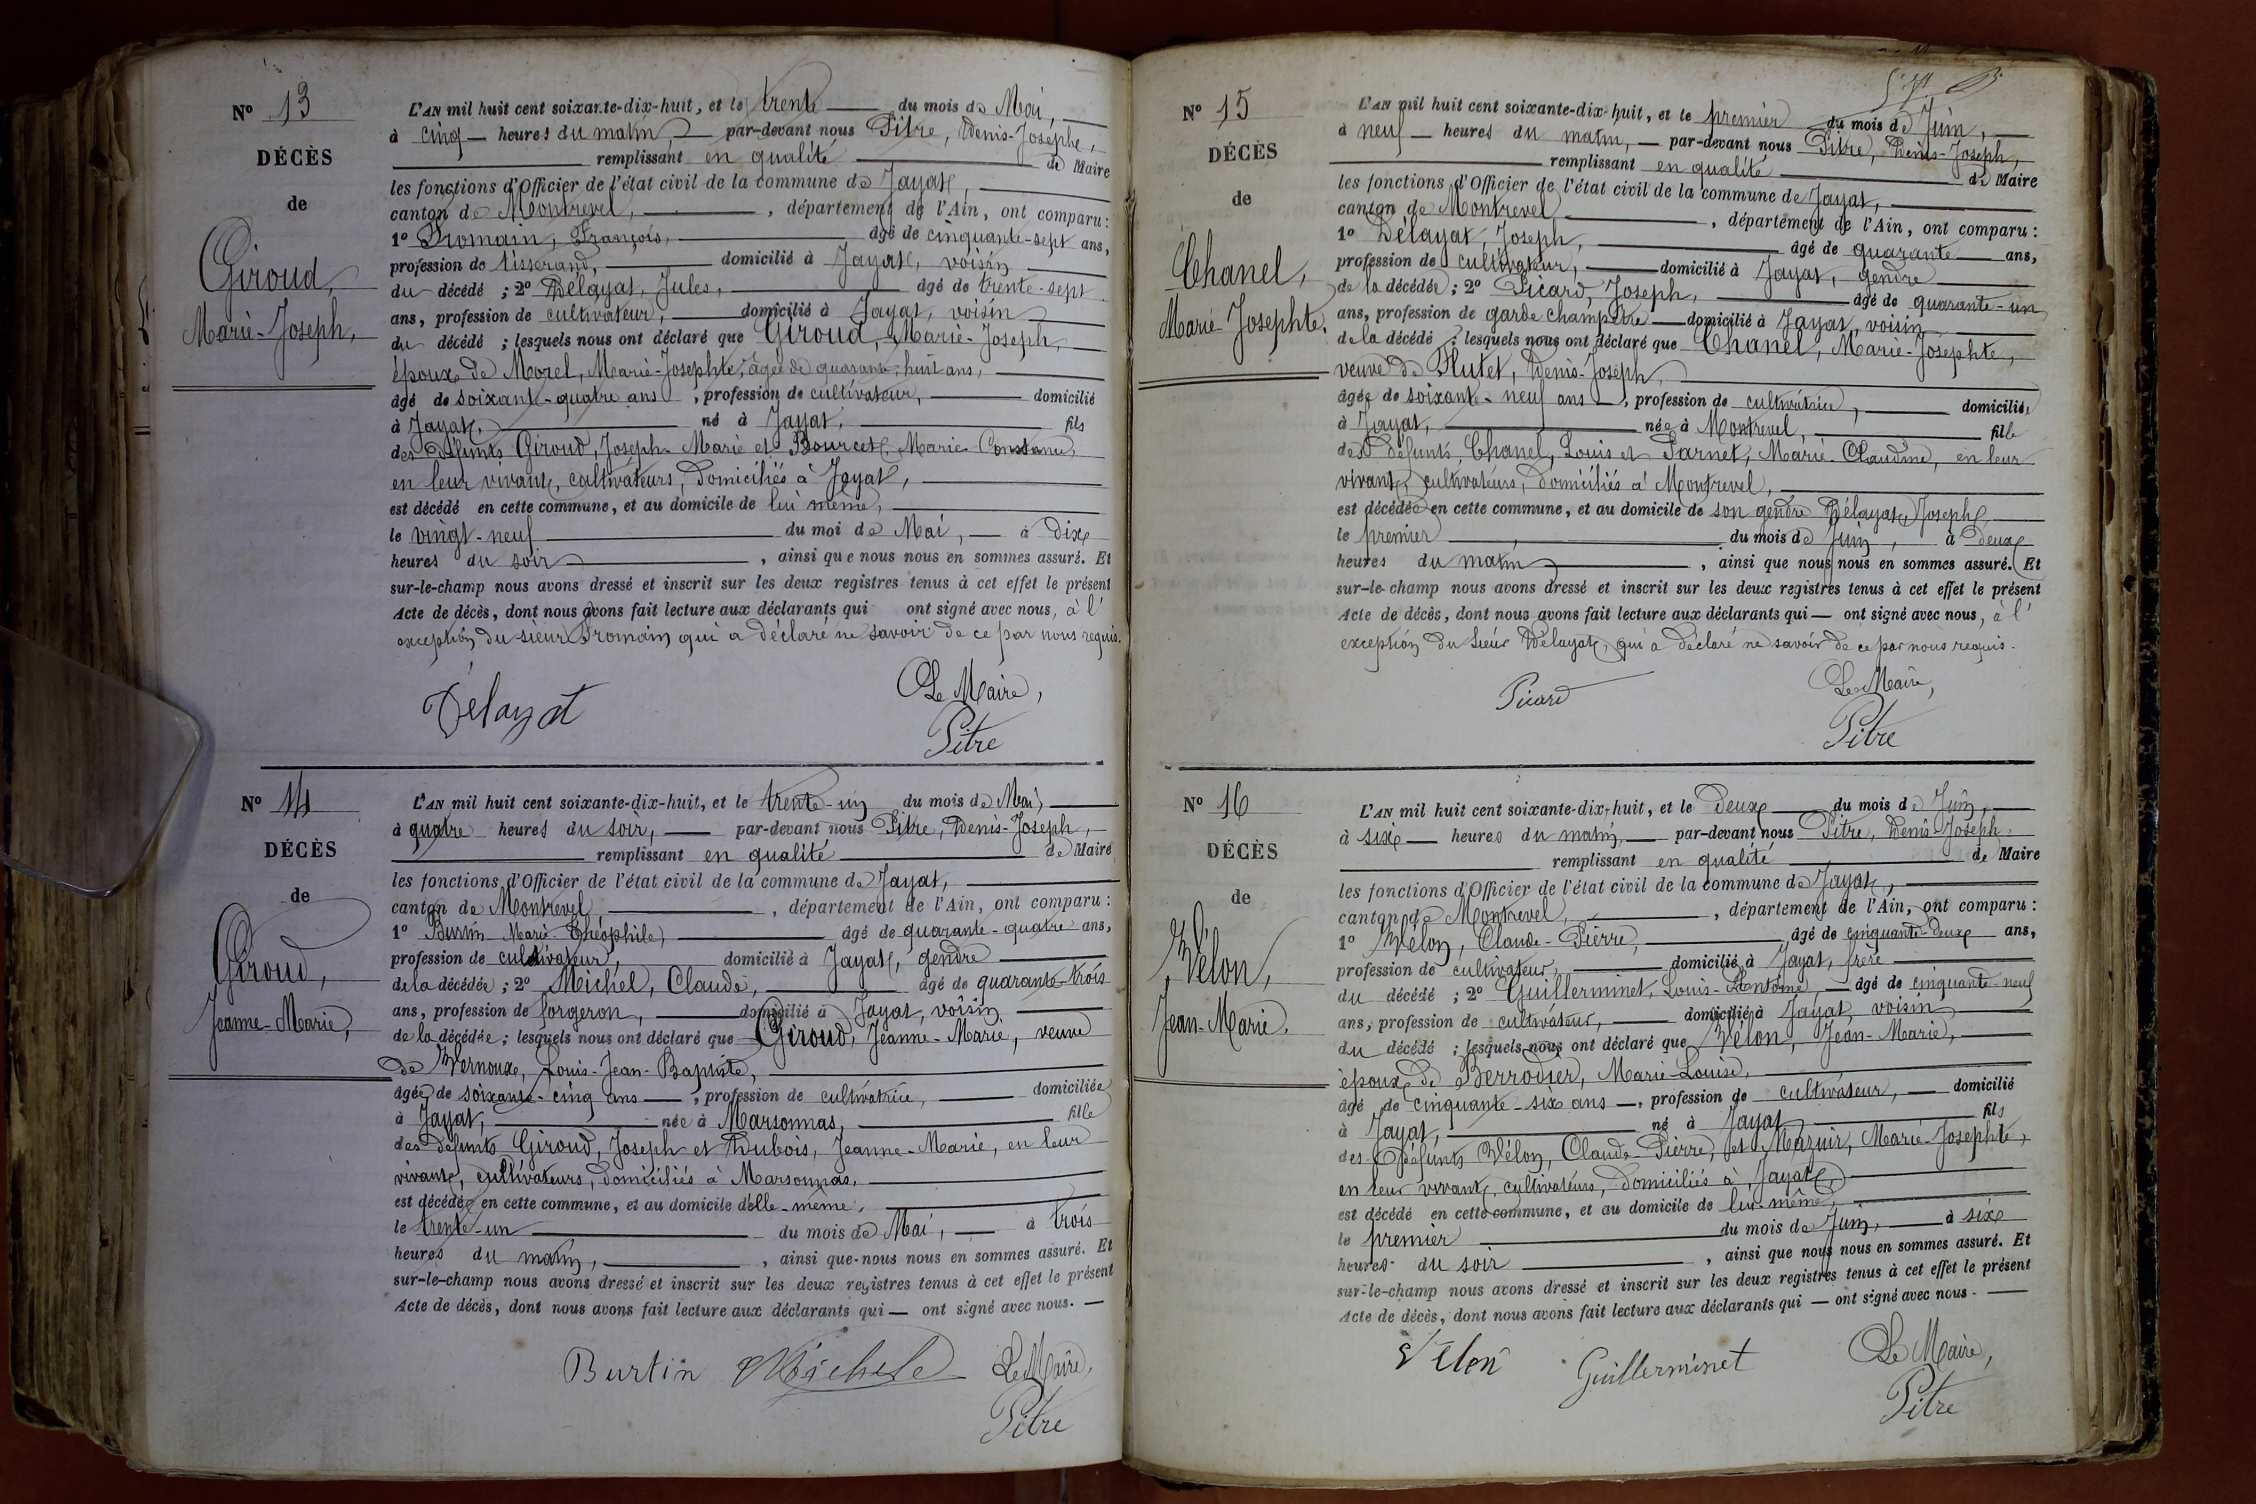 N° 13
DÉCÈS
de
Giroud,
Marie-Joseph,
L'AN mil huit cent soixante-dix-huit, et le trente du mois de Mai,
à cinq heures du matin par-devant nous Pitre, Denis-Joseph,
remplissant en qualité de Maire
les fonctions d'Officier de l'état civil de la commune de Jayat,
canton de Montrevel, , département de l'Ain, ont comparu :
1° Promain, François, âgé de cinquante-sept ans,
profession de tisserand, domicilié à Jayat, voisin
du décédé ; 2° Delayat, Jules, âgé de trente-sept
ans, profession de cultivateur, domicilié à Jayat, voisin
du décédé ; lesquels nous ont déclaré que Giroud, Marie-Joseph,
époux de Morel, Marie-Josephte, âgée de quarante-huit ans,
âgé de soixante-quatre ans , profession de cultivateur, domicilié
à Jayat, né à Jayat, fils
des défunts Giroud, Joseph-Marie et Bourcet, Marie-Constance
en leur vivant, cultivateurs, domiciliés à Jayat,
est décédé en cette commune, et au domicile de lui même,
le vingt-neuf du moi de Mai, à dix
heures du soir , ainsi que nous nous en sommes assuré. Et
sur-le-champ nous avons dressé et inscrit sur les deux registres tenus à cet effet le présent
Acte de décès, dont nous avons fait lecture aux déclarants qui ont signé avec nous, à l'
exception du sieur Promain qui a déclaré ne savoir de ce par nous requis.
Delayat
Le Maire,
Pitre
N° 14
DÉCÈS
de
Giroud,
Jeanne-Marie,
L'AN mil huit cent soixante-dix-huit, et le trente-un du mois de Mai
à quatre heures du soir, par-devant nous Pitre, Denis-Joseph,
remplissant en qualité de Maire
les fonctions d'Officier de l'état civil de la commune de Jayat,
canton de Montrevel , département de l'Ain, ont comparu :
1° Burtin Marie-Théophile, âgé de quarante-quatre ans,
profession de cultivateur, domicilié à Jayat, gendre
de la décédée ; 2° Michel, Claude, âgé de quarante-trois
ans, profession de forgeron, domicilié à Jayat, voisin
de la décédée ; lesquels nous ont déclaré que Giroud, Jeanne-Marie, veuve
de Vernoux, Louis-Jean-Baptiste,
âgée de soixante-cinq ans , profession de cultivatrice, domiciliée
à Jayat, née à Marsonnas, fille
des défunts Giroud, Joseph et Dubois, Jeanne-Marie, en leur
vivant, cultivateurs, domiciliés à Marsonnas,
est décédée en cette commune, et au domicile d'elle-même,
le trente-un du mois de Mai, à trois
heures du matin, , ainsi que nous nous en sommes assuré. Et
sur-le-champ nous avons dressé et inscrit sur les deux registres tenus à cet effet le présent
Acte de décès, dont nous avons fait lecture aux déclarants qui — ont signé avec nous. —
Burtin Michel
Le Maire,
Pitre
N° 15
DÉCÈS
de
Chanel,
Marie Josephte.
L'AN mil huit cent soixante-dix-huit, et le premier du mois de Juin,
à neuf heures du matin, par-devant nous Pitre, Denis-Joseph,
remplissant en qualité de Maire
les fonctions d'Officier de l'état civil de la commune de Jayat,
canton de Montrevel , département de l'Ain, ont comparu :
1° Delayat, Joseph, âgé de quarante ans,
profession de cultivateur, domicilié à Jayat, gendre
de la décédée ; 2° Picard, Joseph, âgé de quarante-un
ans, profession de garde champêtre domicilié à Jayat, voisin
de la décédé ; lesquels nous ont déclaré que Chanel, Marie-Josephte,
veuve de Plutet, Denis-Joseph,
âgée de soixante-neuf ans , profession de cultivatrice, domiciliée
à Jayat, née à Montrevel, fille
des défunts, Chanel, Louis et Parnet, Marie-Claudine, en leur
vivant, cultivateurs, domiciliés à Montrevel,
est décédée en cette commune, et au domicile de son gendre Délayat, Joseph,
le premier du mois de Juin, à deux
heures du matin , ainsi que nous nous en sommes assuré. Et
sur-le-champ nous avons dressé et inscrit sur les deux registres tenus à cet effet le présent
Acte de décès, dont nous avons fait lecture aux déclarants qui — ont signé avec nous, à l'
exception du sieur Delayat, qui a déclaré ne savoir de ce par nous requis.
Picard
Le Maire,
Pitre
N° 16
DÉCÈS
de
Vélon,
Jean-Marie.
L'AN mil huit cent soixante-dix-huit, et le deux du mois de Juin,
à six heures du matin, par-devant nous Pitre, Denis-Joseph,
remplissant en qualité de Maire
les fonctions d'Officier de l'état civil de la commune de Jayat,
canton de Montrevel, , département de l'Ain, ont comparu :
1° Vélon, Claude-Pierre, âgé de cinquante-deux ans,
profession de cultivateur, domicilié à Jayat, frère
du décédé ; 2° Guillerminet, Louis-Antoine, âgé de cinquante-neuf
ans, profession de cultivateur, domicilié à Jayat, voisin
du décédé ; lesquels nous ont déclaré que Vélon, Jean-Marie,
époux de Berrodier, Marie-Louise,
âgé de cinquante-six ans , profession de cultivateur, domicilié
à Jayat, né à Jayat, fils
des défunts Vélon, Claude-Pierre, et Mazuir, Marie-Josephte,
en leur vivant, cultivateurs, domiciliés à Jayat,
est décédé en cette commune, et au domicile de lui-même,
le premier du mois de Juin, à six
heures du soir , ainsi que nous nous en sommes assuré. Et
sur-le-champ nous avons dressé et inscrit sur les deux registres tenus à cet effet le présent
Acte de décès, dont nous avons fait lecture aux déclarants qui — ont signé avec nous. —
Vélon Guillerminet
Le Maire,
Pitre